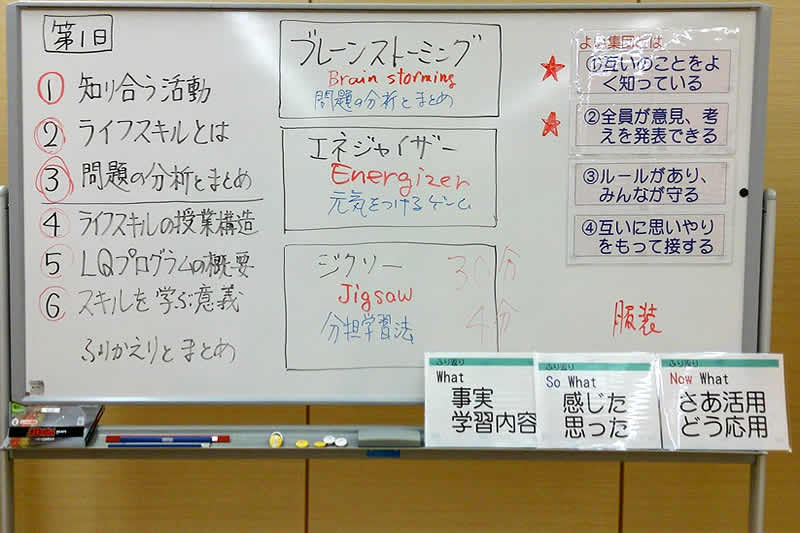 第1日
① 知り合う活動
② ライフスキルとは
③ 問題の分析とまとめ
④ ライフスキルの授業構造
⑤ LQプログラムの概要
⑥ スキルを学ぶ意義
ふりかえりとまとめ
ブレーンストーミング
Brain storming
問題の分析とまとめ
エネジャイザー
Energizer
元気をつけるゲーム
ジグソー
Jigsaw
分担学習法
30分
4分
よい集団とは
①互いのことをよ
く知っている
②全員が意見、考
えを発表できる
③ルールがあり、
みんなが守る
④互いに思いやり
をもって接する
服装
ふり返り
What
事実
学習内容
ふり返り
So What
感じた
思った
ふり返り
Now What
さあ活用
どう応用